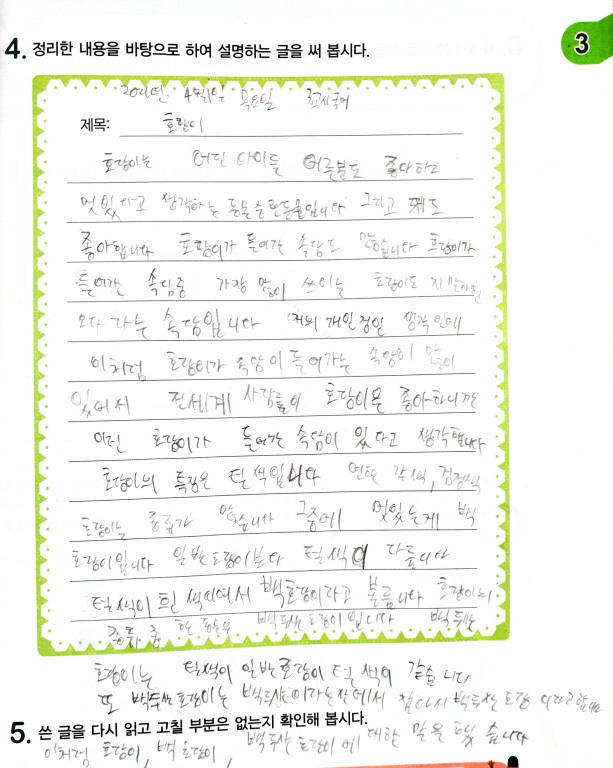 3
4. 정리한 내용을 바탕으로 하여 설명하는 글을 써 봅시다.
4월 목요일 국어
제목: 호랑이
호랑이는 어린 아이들 어른분도 좋아하고
멋있다고 생각하는 동물중 한동물입니다 그리고 저도
좋아합니다 호랑이가 들어간 속담도 많습니다 호랑이가
들어간 속담중 가장 많이 쓰이는 호랑이도 지 말하면
온다 라는 속담입니다 저의 개인적인 생각인데
이처럼 호랑이가 속담이 들어가는 속담이 많이
있어서 전세계 사람들의 호랑이을 좋아하니까
이런 호랑이가 들어간 속담이 있다고 생각합니다
호랑이의 특징은 털색입니다 연한 갈색, 검정색
호랑이는 종류가 많습니다 그중에 멋있는게 백
호랑이입니다 일반호랑이보다 털색이 다릅니다
털색이 흰색이여서 백호랑이라고 불름니다 호랑이의
종류 중 한 동물은 백두산 호랑이입니다 백두산
호랑이는 털색이 일반호랑이 털색의 같습니다
또 백두산호랑이는 백두산이라는산에서 살아서 백두산 호랑이라고합니다
5. 쓴 글을 다시 읽고 고칠 부분은 없는지 확인해 봅시다.
이처럼 호랑이, 백호랑이, 백두산 호랑이에 대한 말을 했습니다